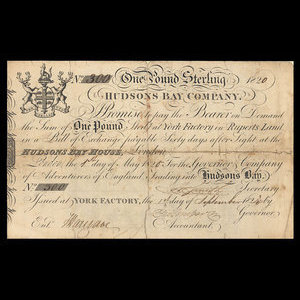 No. 300 One Pound Sterling 1820
HUDSONS BAY COMPANY.
Promise to pay the Bearer on Demand
the Sum of One Pound Sterlg at York Factory in Ruperts Land
in a Bill of Exchange payable Sixty days after Sight at the
HUDSONS BAY HOUSE, London
Dated the 4th day of May 1820 For the Governor & Company
of Adventurers of England trading into Hudsons Bay.
No. 300 Secretary
Issued at YORK FACTORY, the day of September by
Governor.
Ent. Hargrave Accountant.